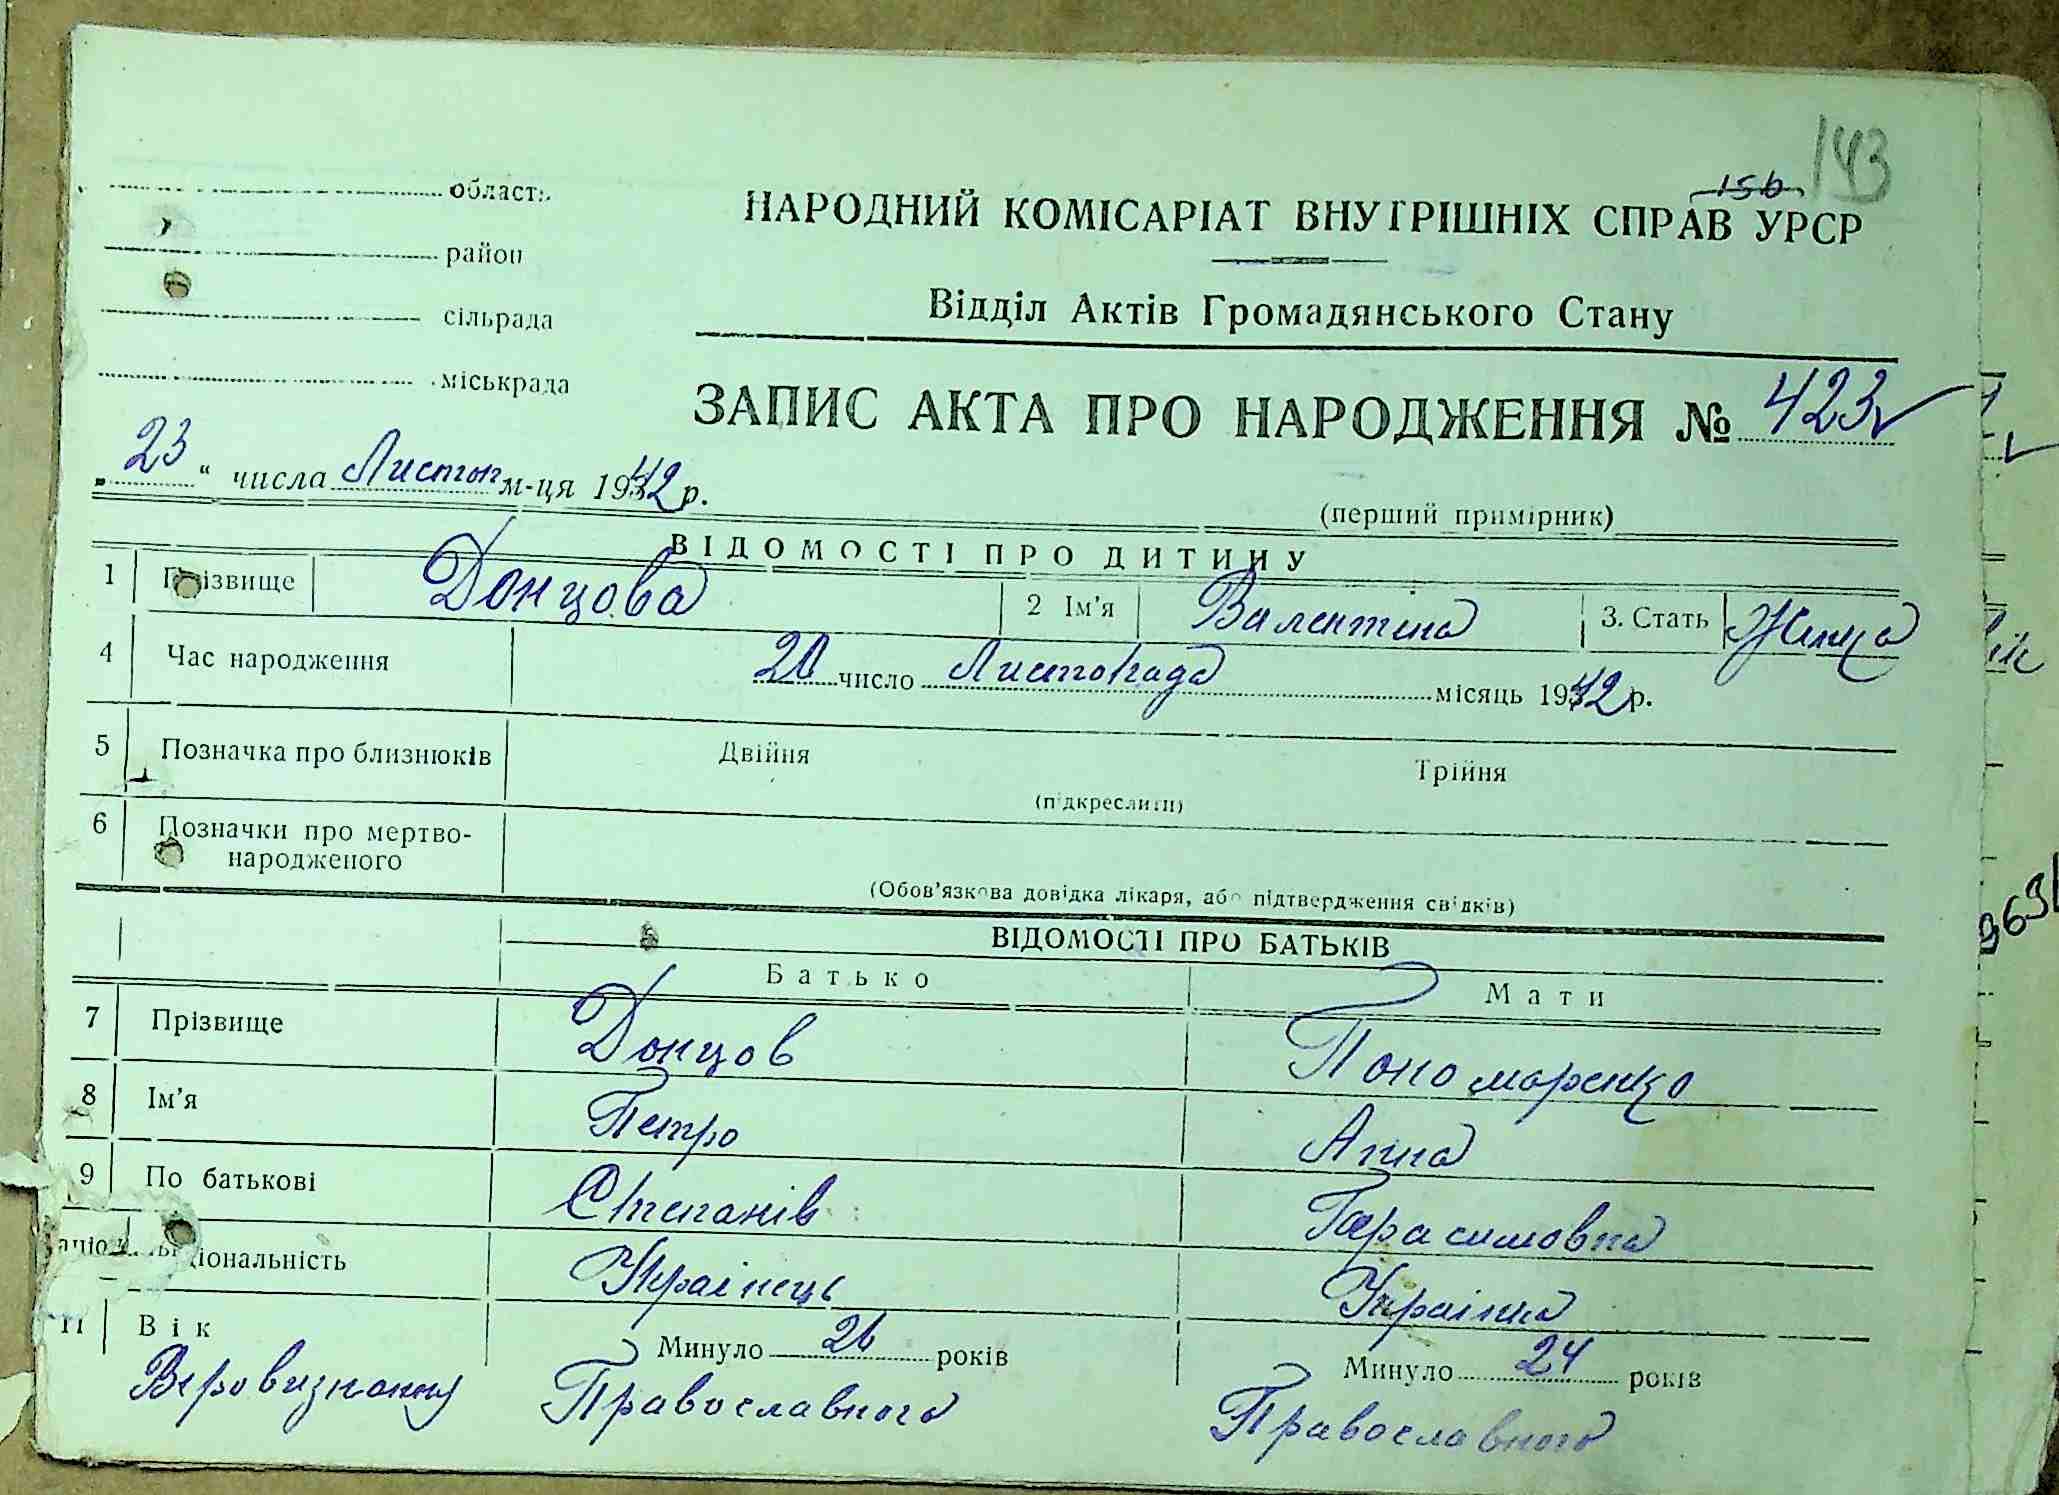 143
156
область
район
сільрада
міськрада
НАРОДНИЙ КОМІСАРІАТ ВНУТРІШНІХ СПРАВ УРСР
Відділ Актів Громадянського Стану
ЗАПИС АКТА ПРО НАРОДЖЕННЯ № 423
„23“ числа Листоп м-ця 1942 р.
(перший примірник)
ВІДОМОСТІ ПРО ДИТИНУ
1 Прізвище Донцова 2 Ім'я Валентина 3. Стать Жиноча
4 Час народження 20 число Листопада місяць 1942 р.
5 Позначка про близнюків Двійня Трійня
(підкреслити)
6 Позначки про мертво-
народженого
(Обов'язкова довідка лікаря, або підтвердження свідків)
ВІДОМОСТІ ПРО БАТЬКІВ
Батько Мати
7 Прізвище Донцов Пономаренко
8 Ім'я Петро Анна
9 По батькові Степанів Гарасимовна
ціональність Українець Українка
11 Вік Минуло 26 років Минуло 24 років
Веровизнання Православного Православного